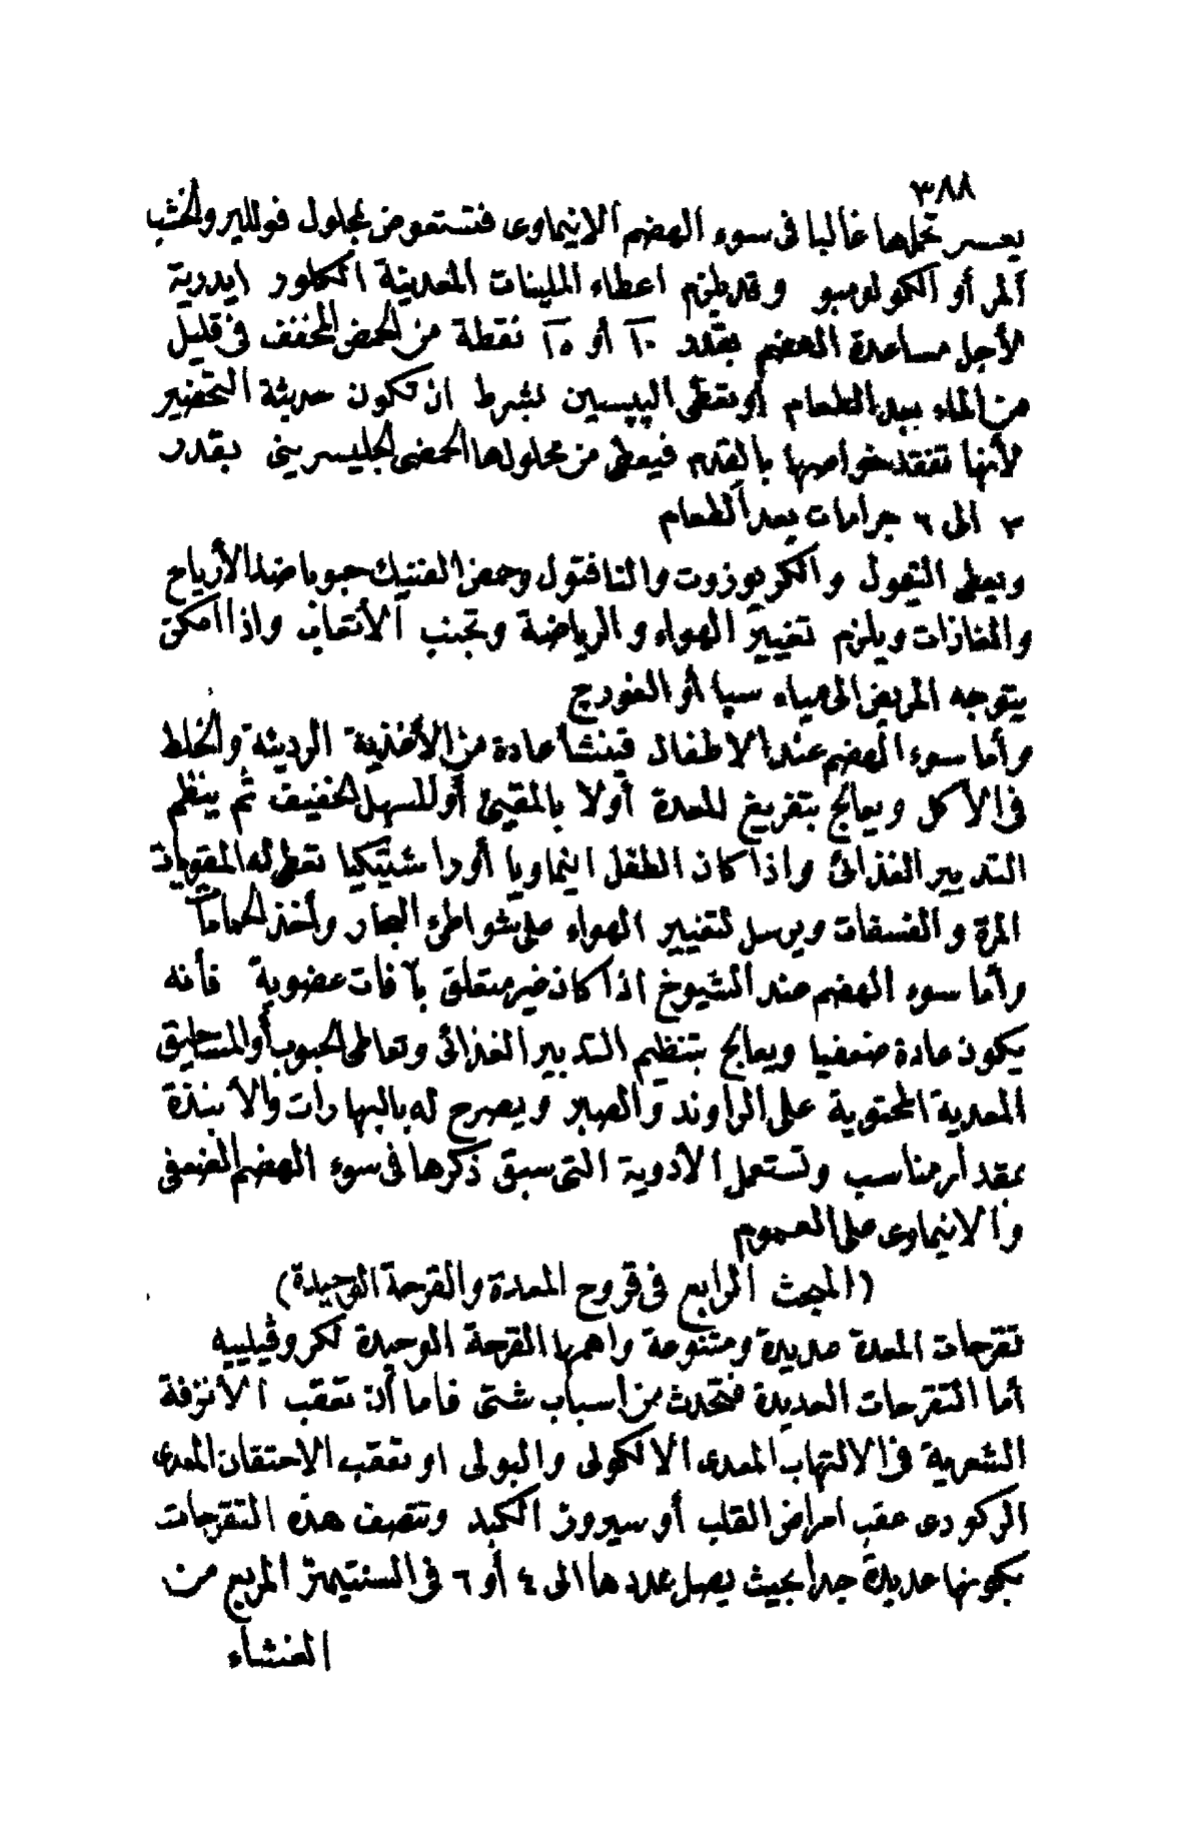 ٣٨٨
يعسر تحملها غالبا فى سوء الهضم الانيماوى فتستعوض بمحلول فولير والخشب
المر أو الكولومبو وقد يلزم اعطاء الملينات المعدنية الكلور ايدرية
لأجل مساعدة الهضم بقدر ١٠ أو ١٥ نقطة من الحمض المخفف فى قليل
من الماء بعد الطعام أو تعطى الپپسين بشرط ان تكون حديثة التحضير
لأنها تفقد خواصها بالقدم فيعطى من محلولها الحمضى الجليسرينى بقدر
٣ الى ٦ جرامات بعد الطعام
ويعطى التيمول والكريوزوت والنافتول وحمض الفنيك حبوبا ضد الأرياح
والغازات ويلزم تغيير الهواء والرياضة وتجنب الأتعاب واذا امكن
يتوجه المريض الى مياه سپا أو
وأما سوء الهضم عند الاطفال فينشأ عادة من الأغذية الرديئة والخلط
فى الأكل ويعالج بتفريغ المعدة أولا بالمقيئ أو المسهل الخفيف ثم ينظم
التدبير الغذائى واذا كان الطفل انيماويا أو راشيتيكيا تعطى له المقويات
المرة والفسفات ويرسل لتغيير الهواء على شواطئ البحار وأخذ الحمامات
وأما سوء الهضم عند الشيوخ اذا كان غير متعلق بآفات عضوية فأنه
يكون عادة ضعفيا ويعالج بتنظيم التدبير الغذائى وتعاطى الحبوب أو المساحيق
المعدية المحتوية على الراوند والصبر ويصرح له بالبهارات والأنبذة
بمقدار مناسب وتستعمل الأدوية التى سبق ذكرها فى سوء الهضم الضعفى
والانيماوى على العموم
(المبحث الرابع فى قروح المعدة والقرحة الوحيدة)
تقرحات المعدة عديدة ومتنوعة واهمها القرحة الوحيدة لكروڤيلييه
أما التقرحات العديدة فتحدث من أسباب شتى فاما أن تعقب الأنزفة
الشعرية فى الالتهاب المعدى الالكولى والبولى او تعقب الاحتقان المعدى
الركودى عقب امراض القلب أو سيروز الكبد وتتصف هذه التقرحات
بكونها عديدة جدا بحيث يصل عددها الى ٤ أو ٦ فى السنتيمتر المربع من
الغشاء